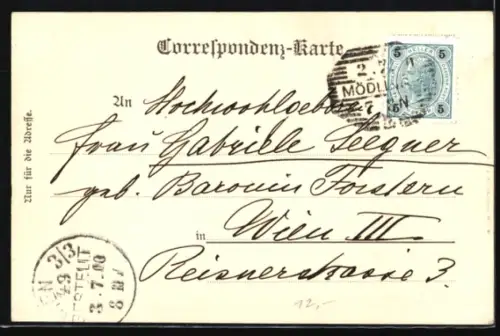 Correspondenz-Karte.
5 5
MÖDLING
5 5
An Hochwohlgeboren
Frau Gabriele Seegner
geb. Baronin Forstern
in Wien III
Reisnerstrasse 3.
Nur für die Adresse.
WIEN 3/3
BESTELLT
3.7.00
12,-